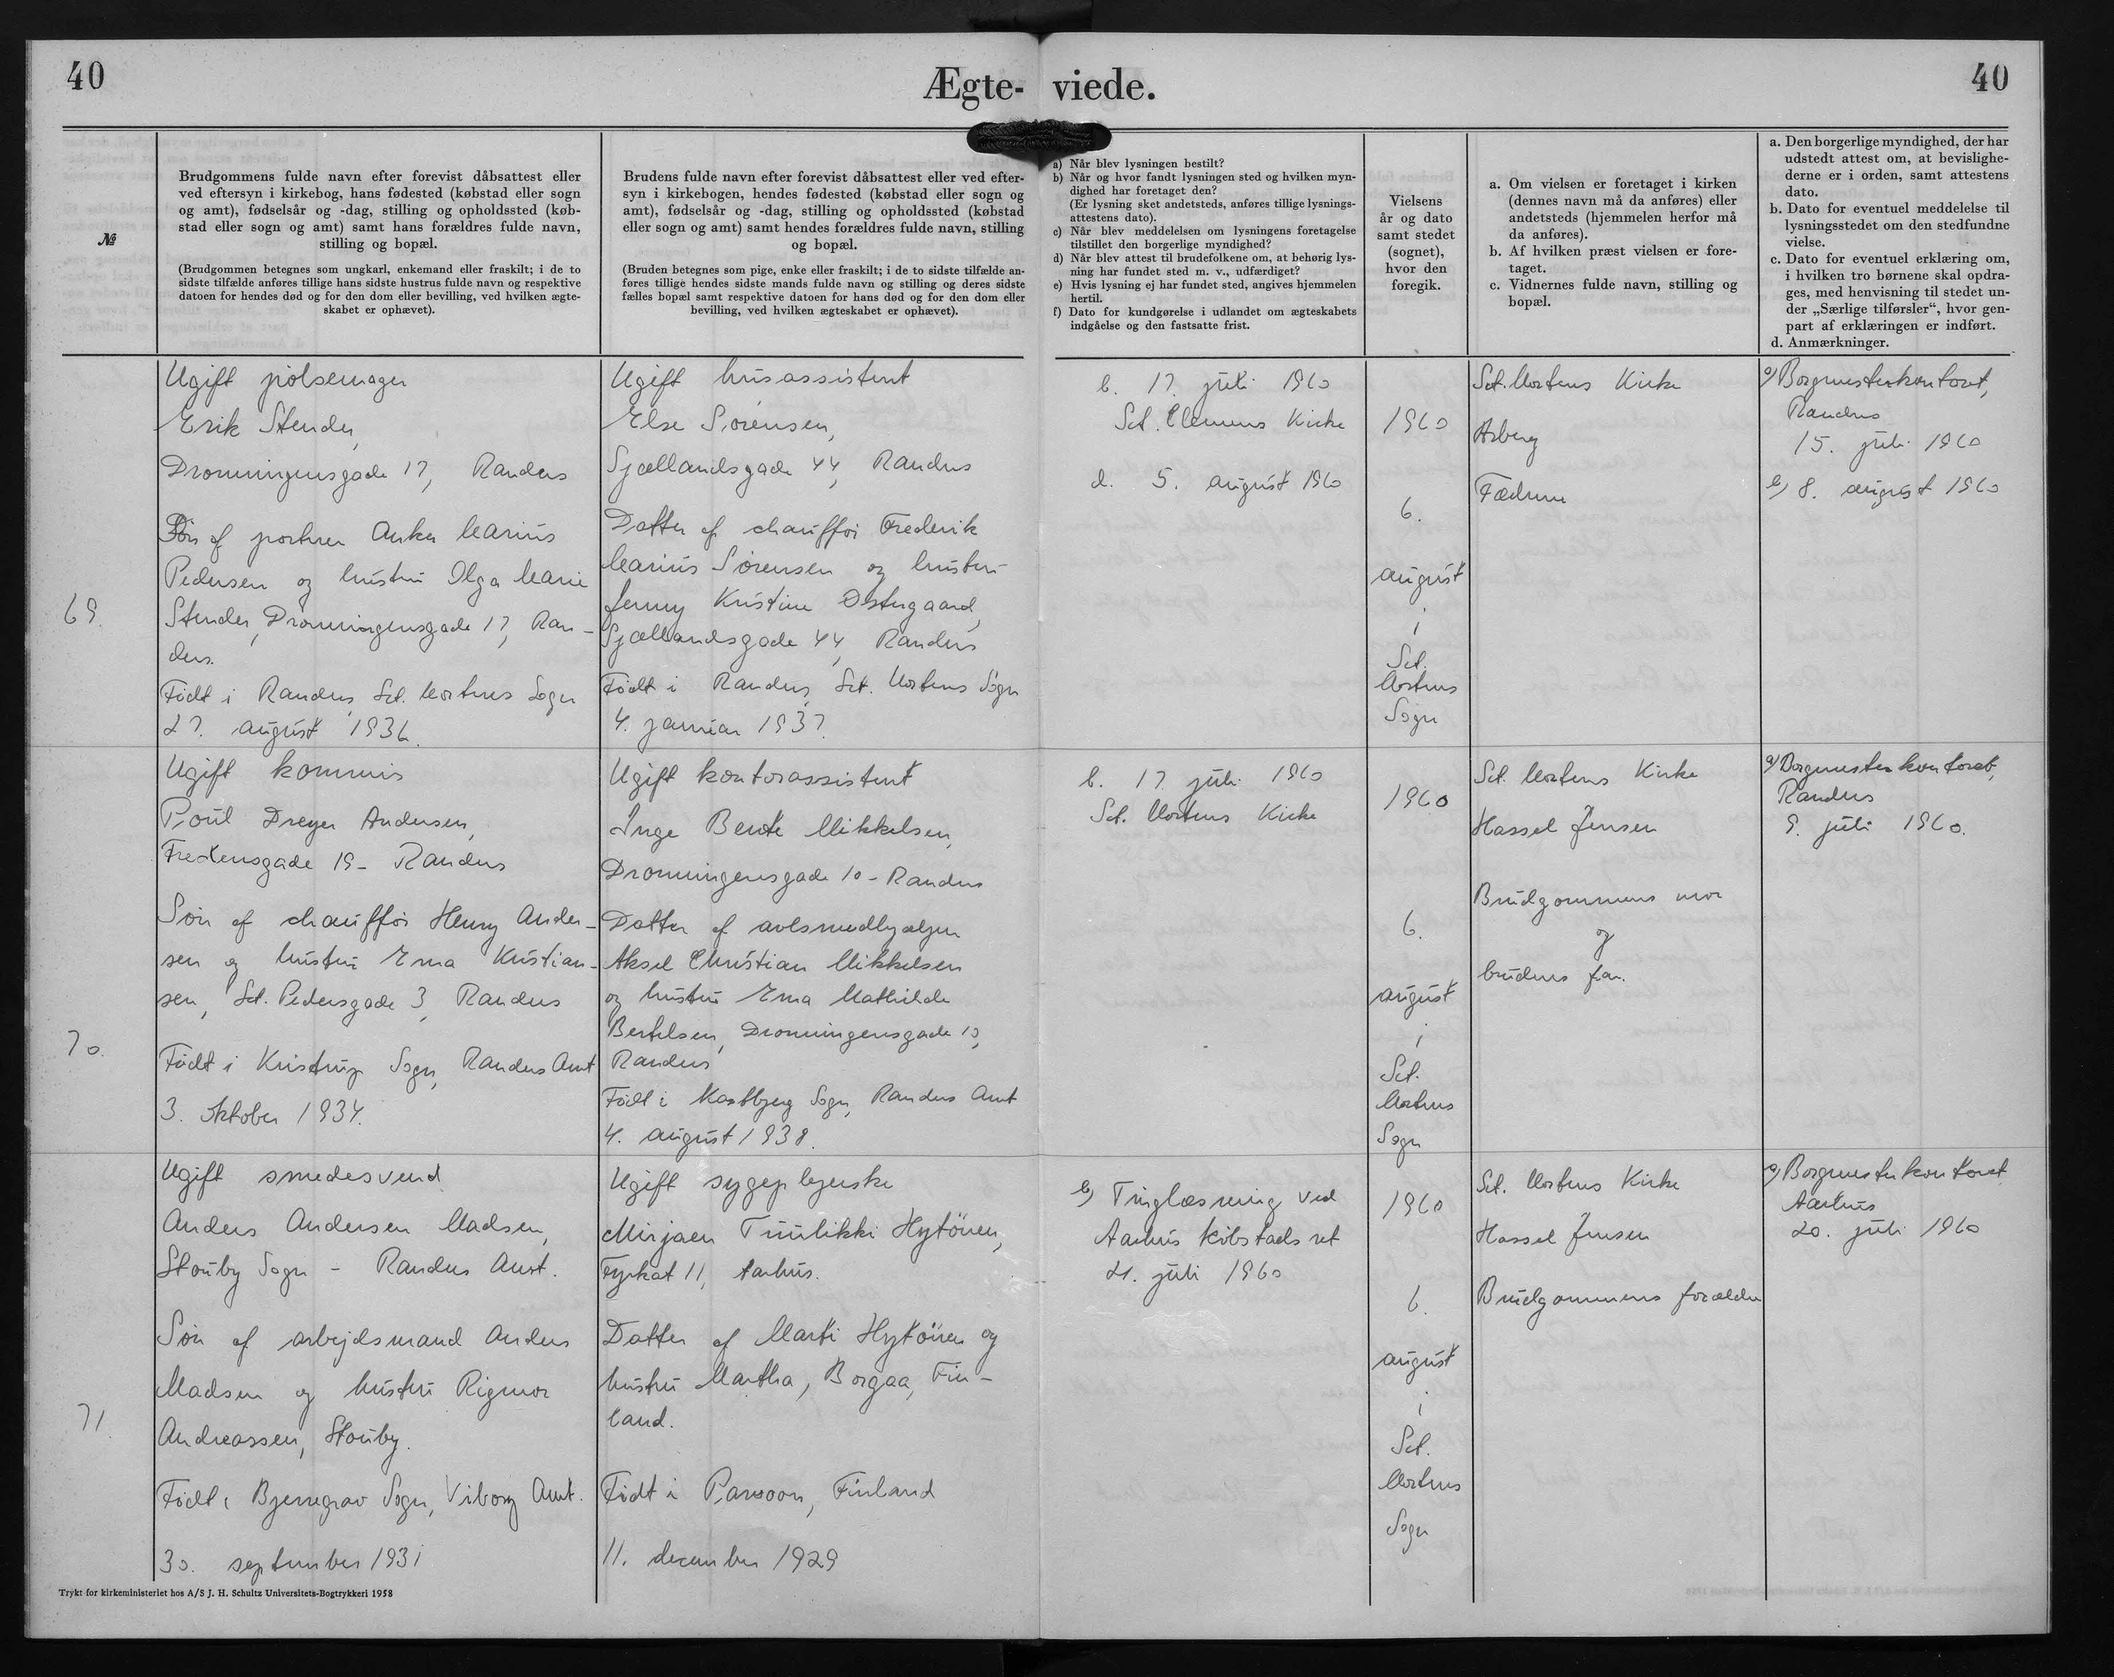 40
Ægte- viede.
40
№
Brudgommens fulde navn efter forevist dåbsattest eller
ved eftersyn i kirkebog, hans fødested (købstad eller sogn
og amt), fødselsår og -dag, stilling og opholdssted (køb-
stad eller sogn og amt) samt hans forældres fulde navn,
stilling og bopæl.
(Brudgommen betegnes som ungkarl, enkemand eller fraskilt; i de to
sidste tilfælde anføres tillige hans sidste hustrus fulde navn og respektive
datoen for hendes død og for den dom eller bevilling, ved hvilken ægte-
skabet er ophævet).
Brudens fulde navn efter forevist dåbsattest eller ved efter-
syn i kirkebogen, hendes fødested (købstad eller sogn og
amt), fødselsår og -dag, stilling og opholdssted (købstad
eller sogn og amt) samt hendes forældres fulde navn, stilling
og bopæl.
(Bruden betegnes som pige, enke eller fraskilt; i de to sidste tilfælde an-
føres tillige hendes sidste mands fulde navn og stilling og deres sidste
fælles bopæl samt respektive datoen for hans død og for den dom eller
bevilling, ved hvilken ægteskabet er ophævet).
a) Når blev lysningen bestilt?
b) Når og hvor fandt lysningen sted og hvilken myn-
dighed har foretaget den?
(Er lysning sket andetsteds, anføres tillige lysnings-
attestens dato).
c) Når blev meddelelsen om lysningens foretagelse
tilstillet den borgerlige myndighed?
d) Når blev attest til brudefolkene om, at behørig lys-
ning har fundet sted m. v., udfærdiget?
e) Hvis lysning ej har fundet sted, angives hjemmelen
hertil.
f) Dato for kundgørelse i udlandet om ægteskabets
indgåelse og den fastsatte frist.
Vielsens
år og dato
samt stedet
(sognet),
hvor den
foregik.
a. Om vielsen er foretaget i kirken
(dennes navn må da anføres) eller
andetsteds (hjemmelen herfor må
da anføres).
b. Af hvilken præst vielsen er fore-
taget.
c. Vidnernes fulde navn, stilling og
bopæl.
a. Den borgerlige myndighed, der har
udstedt attest om, at bevislighe-
derne er i orden, samt attestens
dato.
b. Dato for eventuel meddelelse til
lysningsstedet om den stedfundne
vielse.
c. Dato for eventuel erklæring om,
i hvilken tro børnene skal opdra-
ges, med henvisning til stedet un-
der „Særlige tilførsler“, hvor gen-
part af erklæringen er indført.
d. Anmærkninger.
69.
Ugift pølsemager
Erik Stender,
Dronningensgade 17, Randers
Søn af portner Anker Marius
Pedersen og hustru Olga Marie
Stender, Dronningensgade 17, Ran-
ders.
Født i Randers, Sct. Mortens Sogn
27. august 1936.
Ugift husassistent
Else Sørensen,
Sjællandsgade 44, Randers
Datter af chauffør Frederik
Marius Sørensen og hustru
Jenny Kristine Østergaard,
Sjællandsgade 44, Randers
Født i Randers, Sct. Mortens Sogn
4. januar 1937.
b. 17. juli 1960
Sct. Clemens Kirke
d. 5. august 1960
1960
6.
august
i
Sct.
Mortens
Sogn
Sct. Mortens Kirke
Asberg
Fædrene
a) Borgmesterkontoret,
Randers
15. juli 1960
b) 8. august 1960
70.
Ugift kommis
Poul Dreyer Andersen,
Fredensgade 19 - Randers
Søn af chauffør Henry Ander-
sen og hustru Erna Kristian-
sen, Sct. Pedersgade 3, Randers
Født i Kristrup Sogn, Randers Amt
3. oktober 1934.
Ugift kontorassistent
Inge Bente Mikkelsen,
Dronningensgade 10 - Randers
Datter af avlsmedhjælper
Aksel Christian Mikkelsen
og hustru Erna Mathilde
Bertelsen, Dronningensgade 10,
Randers
Født i Kastbjerg Sogn, Randers Amt
4. august 1938.
b. 17. juli 1960
Sct. Mortens Kirke
1960
6.
august
i
Sct.
Mortens
Sogn
Sct. Mortens Kirke
Hassel Jensen
Brudgommens mor
og
brudens far.
a) Borgmesterkontoret,
Randers
9. juli 1960.
71.
Ugift smedesvend
Anders Andersen Madsen,
Stouby Sogn - Randers Amt.
Søn af arbejdsmand Anders
Madsen og hustru Rigmor
Andreassen, Stouby.
Født i Bjerregrav Sogn, Viborg Amt.
30. september 1931
Ugift sygeplejerske
Mirjaen Tuulikki Hytönen,
Fyrkat 11, Aarhus.
Datter af Marti Hytönen og
hustru Martha, Borgaa, Fin-
land.
Født i Finland
11. december 1929
b) Tinglæsning ved
Aarhus Købstads ret
21. juli 1960
1960
6.
august
i
Sct.
Mortens
Sogn
Sct. Mortens Kirke
Hassel Jensen
Brudgommens forældre
a) Borgmesterkontoret
Aarhus
20. juli 1960
Trykt for kirkeministeriet hos A/S J. H. Schultz Universitets-Bogtrykkeri 1958